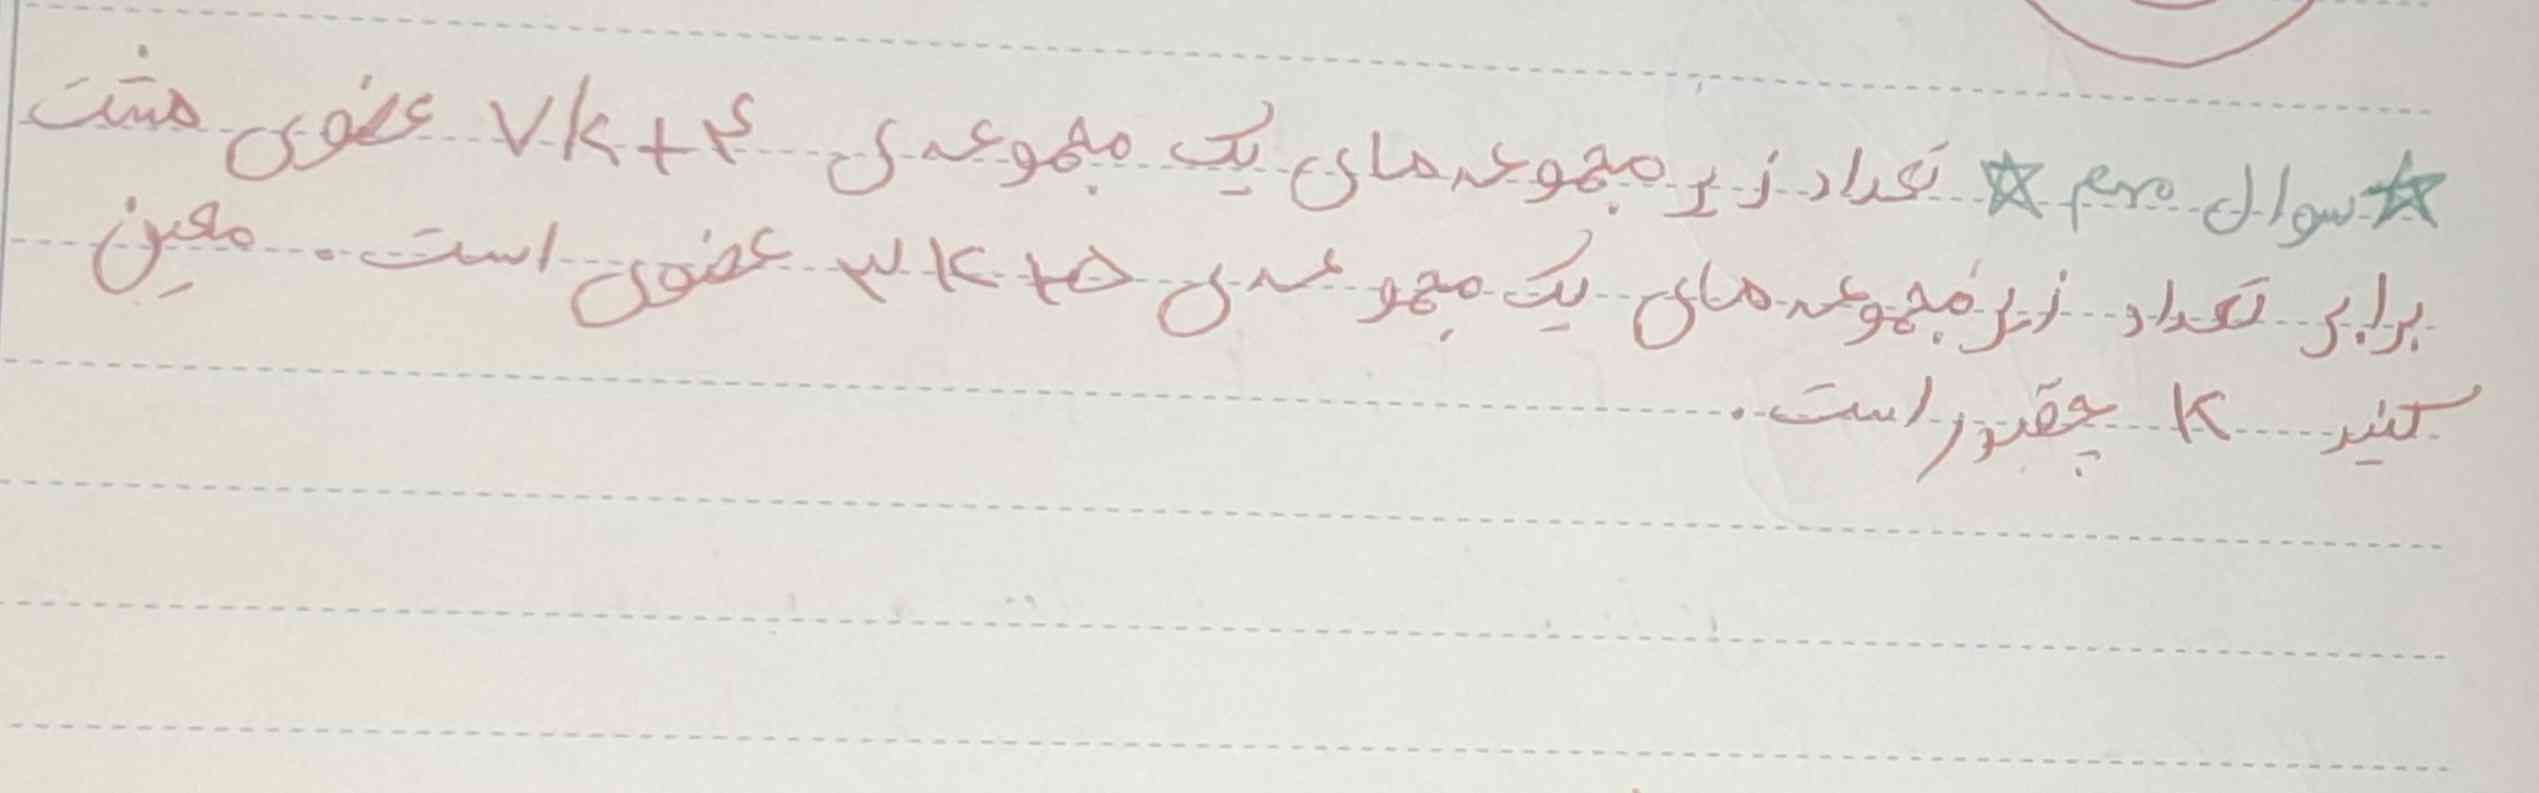 ☆ سوال سوم ☆ تعداد زیر مجموعه های یک مجموعه ی ۷k+۴ عضوی هشت
برابر تعداد زیر مجموعه های یک مجموعه ی ۳k+۵ عضوی است. معین
کنید k چقدر است.